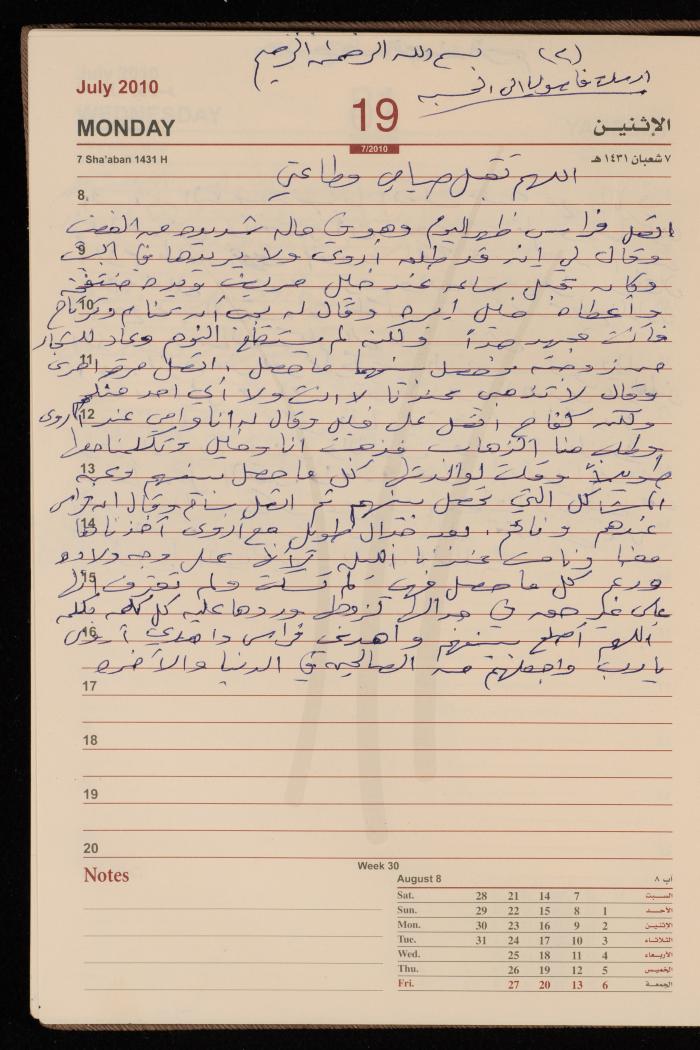 (٢) بسم الله الرحمن الرحيم
ارسلت فاصوليا الى
July 2010
MONDAY
19
الإثنين
7 Sha'aban 1431 H
7/2010
٧ شعبان ١٤٣١ هـ
اللهم تقبل صيامي وطاعتي
8
اتصل فراس ظهر اليوم وهو في حاله شديده من الغضب
9
وقال لي انه قد طلق أروى ولا يريدها في البيت
وكان قبل ساعه عند خليل مريض ويده
10
وأعطاه خليل ابره وقال له يجب أن تنام وترتاح
فأنت مجهد جداً ولكنه لم يستطع النوم وعاد للشجار
11
مع زوجته وحصل بينهما ما حصل . اتصل مرة اخرى
وقال لا تذهبي لا انت ولا أي احد
12
ولكنه اتصل على خليل وقال له انا عند أروى
وطلب منا الذهاب فذهبت انا وخليل وتكلمنا معها
13
طويلاً وقلت لوالدتها كل ما حصل بينهم وعن
المشاكل التي تحصل بينهم ثم اتصل بسام وقال انه فراس
14
عندهم ونائم . بعد جدال طويل مع أروى أخذناها
معنا ونامت عندنا الليله على وجه ولاده
15
ورغم كل ما حصل فهي لم تسكت ولم تعترف انها
على غير حق في جدالها لزوجها وردها عليه كل كلمه بكلمه
16
اللهم أصلح بينهم واهدي فراس واهدي أروى
يا رب واجعلهم من الصالحين في الدنيا والآخره
17
18
19
20
Notes
Week 30
August 8
آب ٨
Sat. 28 21 14 7 السبت
Sun. 29 22 15 8 1 الأحد
Mon. 30 23 16 9 2 الإثنين
Tue. 31 24 17 10 3 الثلاثاء
Wed. 25 18 11 4 الأربعاء
Thu. 26 19 12 5 الخميس
Fri. 27 20 13 6 الجمعة